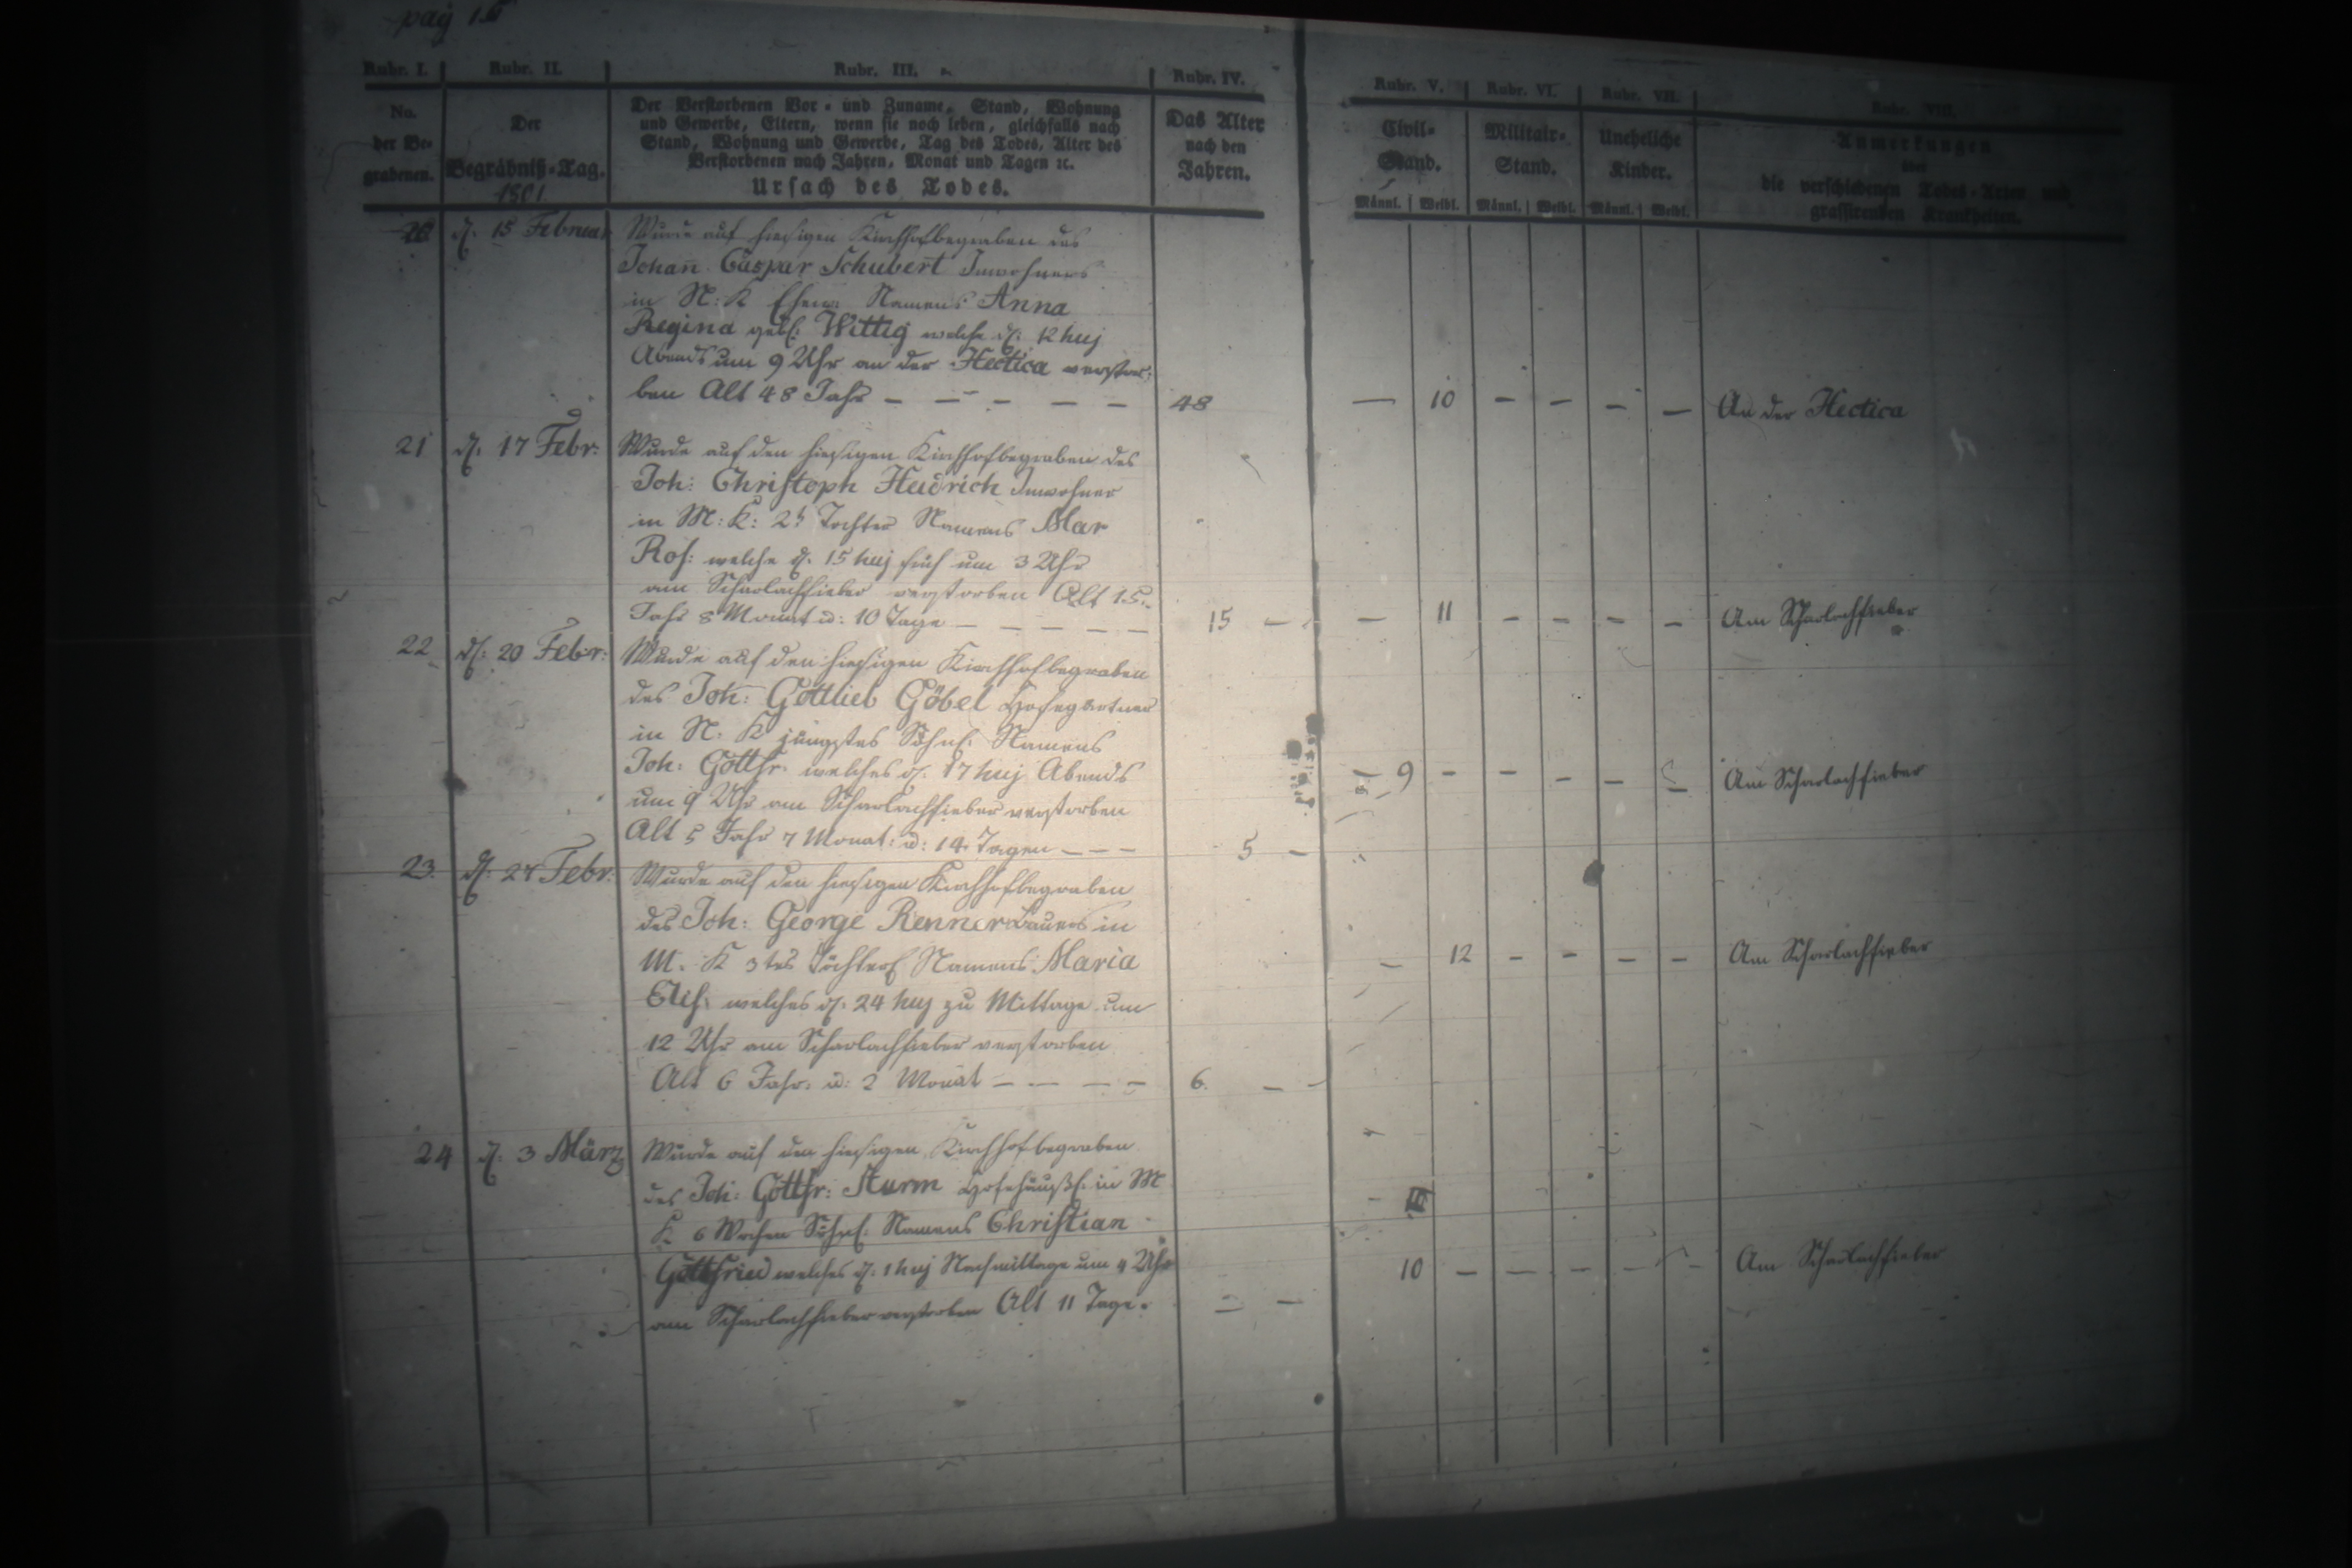 pag 15
Rubr. I. Rubr. II. Rubr. III. Rubr. IV. Rubr. V. Rubr. VI. Rubr. VII. Rubr. VIII.
No. der Be- grabenen.
Der Begräbniß-Tag. 1801.
Der Verstorbenen Vor- und Zuname, Stand, Wohnung
und Gewerbe, Eltern, wenn sie noch leben, gleichfalls nach
Stand, Wohnung und Gewerbe, Tag des Todes, Alter des
Verstorbenen nach Jahren, Monat und Tagen ꝛc.
Ursach des Todes.
Das Alter
nach den
Jahren.
Civil-
Stand.
Männl. Weibl.
Militair-
Stand.
Männl. Weibl.
Uneheliche
Kinder.
Männl. Weibl.
Anmerkungen
über
die verschiedenen Todes-Arten und
grassirenden Krankheiten.
20 d. 15 Februar Wurde auf hiesigen Kirchhof begraben des
Johan Caspar Schubert Inwohners
in N: K Ehew: Namens Anna
Regina geb: Wittig welche d: 12 huj
Abends um 9 Uhr an der Hectica verstor:
ben Alt 48 Jahr – – – – – 48 — 10 – – – – An der Hectica
21 d. 17 Febr: Wurde auf den hiesigen Kirchhof begraben des
Joh: Christoph Heidrich Inwohner
in M: K: 2te Tochter Namens Mar
Ros: welche d. 15 huj früh um 3 Uhr
am Scharlachfieber verstorben Alt 15.
Jahr 8 Monat u: 10 Tage – – – – – 15 – – 11 – – – – Am Scharlachfieber
22 d: 20 Febr: Wurde auf den hiesigen Kirchhof begraben
des Joh: Gottlieb Göbel Hofegärtner
in N. K jüngstes Söhnl. Namens
Joh: Gottfr. welches d. 17 huj Abends
um 9 Uhr am Scharlachfieber verstorben
Alt 5 Jahr 7 Monat: u: 14. Tagen – – – 5 – 9 – – – – – Am Scharlachfieber
23. d. 27 Febr. Wurde auf den hiesigen Kirchhof begraben
des Joh: George Renner Bauers in
M. K 3tes Töchterl Namens Maria
Elis. welches d. 24 huj zu Mittage um
12 Uhr am Scharlachfieber verstorben
Alt 6 Jahr: u: 2 Monat – – – – 6. – – 12 – – – – Am Scharlachfieber
24 d. 3 März Wurde auf den hiesigen Kirchhof begraben
des Joh: Gottfr: Sturm Hofehäußl. in M
K 6 Wochen Söhnl: Namens Christian
Gottfried welches d: 1 huj Nachmittage um 4 Uhr
am Scharlachfieber verstorben Alt 11 Tage. – – 10 – – – – – Am Scharlachfieber